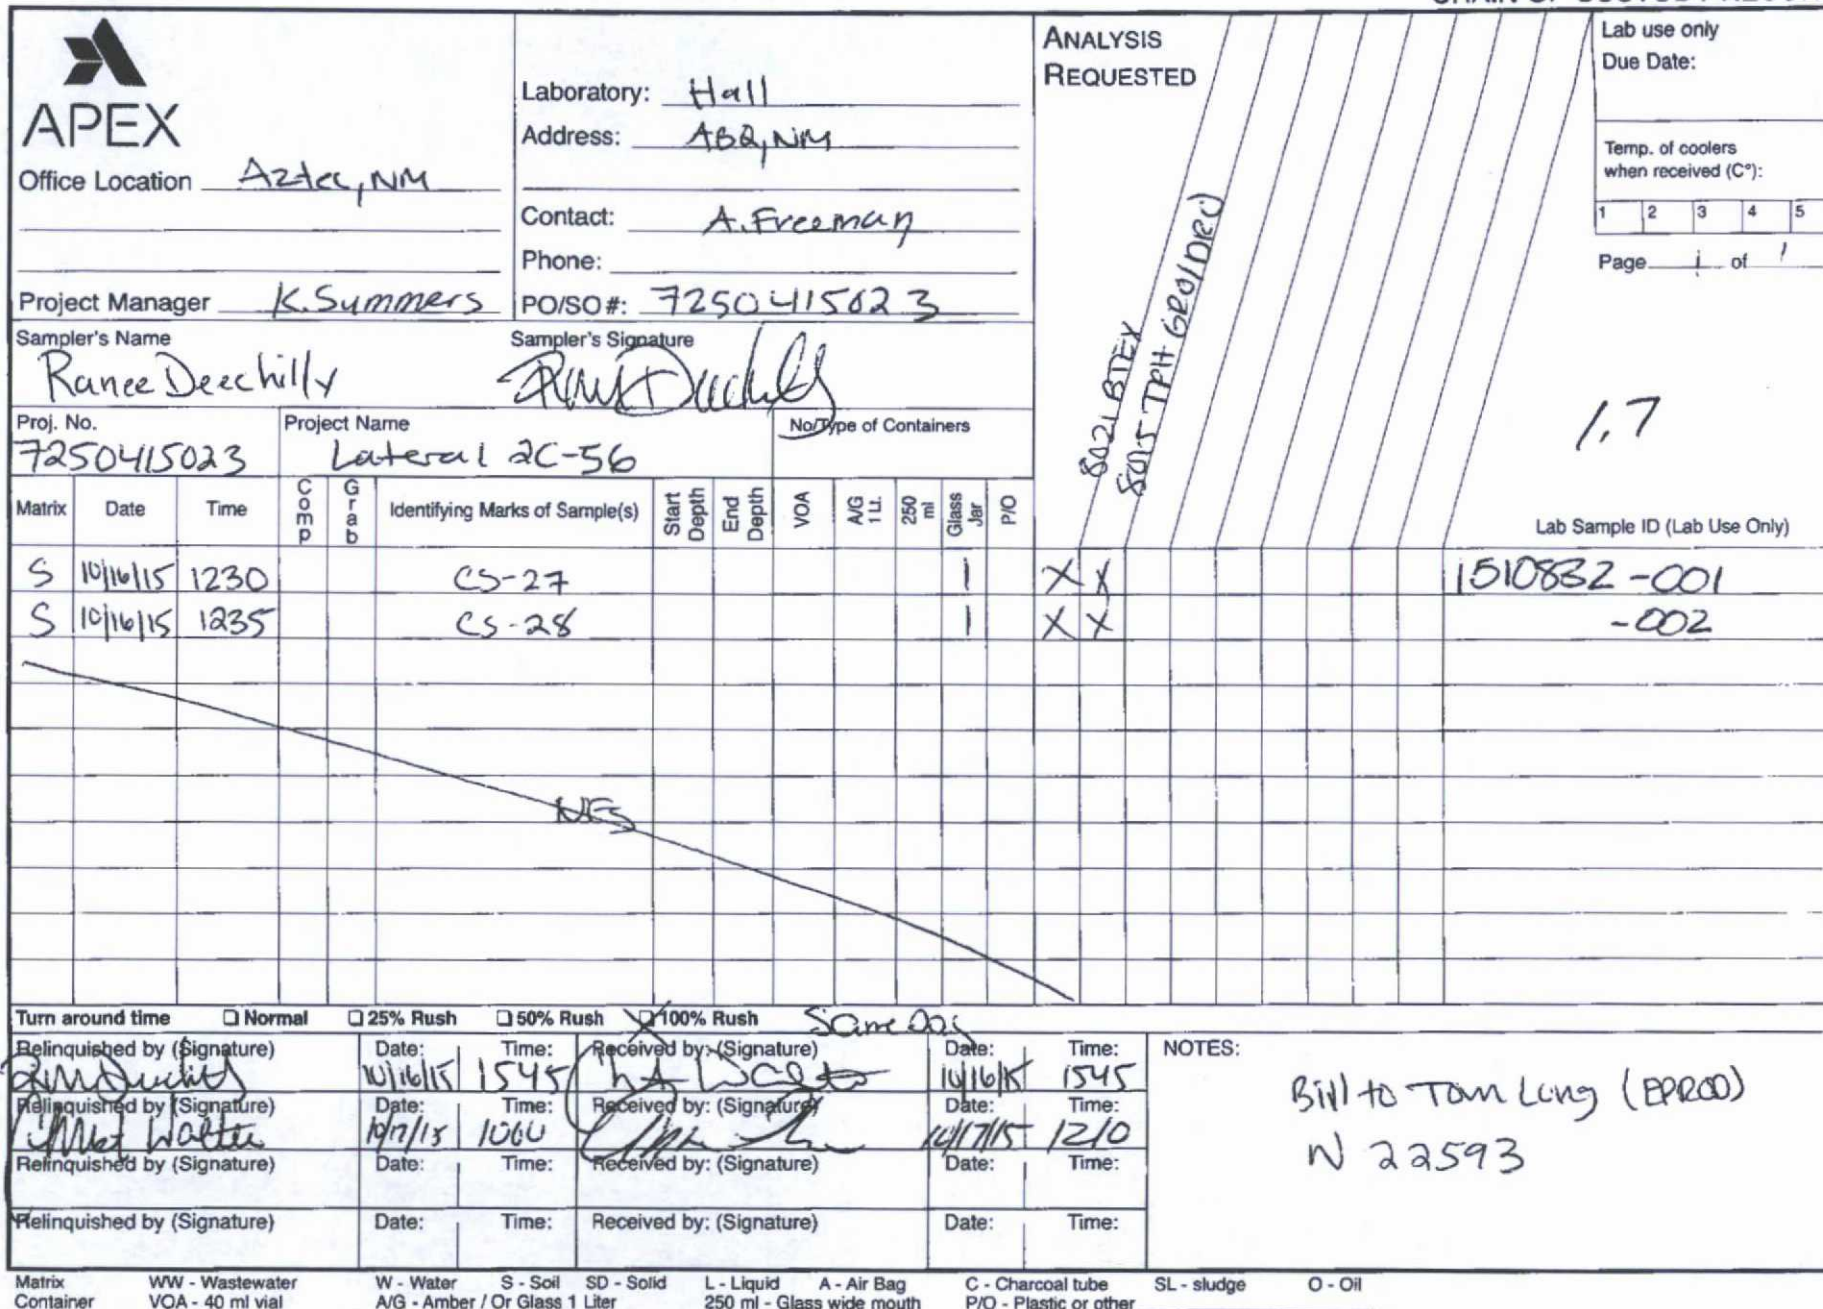 APEX
Office Location Aztec, NM
Project Manager K. Summers
Laboratory: Hall
Address: ABQ, NM
Contact: A. Freeman
Phone:
PO/SO #: 7250415023
ANALYSIS
REQUESTED
8021 BTEX
8015 TPH GRO/DRO
Lab use only
Due Date:
Temp. of coolers
when received (C°):
1 2 3 4 5
Page 1 of 1
1.7
Sampler's Name
Ranee Deechilly
Sampler's Signature
Proj. No.
7250415023
Project Name
Lateral 2C-56
No/Type of Containers
Matrix Date Time Comp Grab Identifying Marks of Sample(s) Start Depth End Depth VOA A/G 1 Lt. 250 ml Glass Jar P/O Lab Sample ID (Lab Use Only)
S 10/16/15 1230 CS-27 1 X X 1510832 -001
S 10/16/15 1235 CS-28 1 X X -002
NFS
Turn around time Normal 25% Rush 50% Rush X 100% Rush Same Day
Relinquished by (Signature) Date: Time: Received by: (Signature) Date: Time:
10/16/15 1545 10/16/15 1545
Relinquished by (Signature) Date: Time: Received by: (Signature) Date: Time:
10/17/15 10/17/15 1210
Relinquished by (Signature) Date: Time: Received by: (Signature) Date: Time:
Relinquished by (Signature) Date: Time: Received by: (Signature) Date: Time:
NOTES:
Bill to Tom Long (EPROD)
N 22593
Matrix WW - Wastewater W - Water S - Soil SD - Solid L - Liquid A - Air Bag C - Charcoal tube SL - sludge O - Oil
Container VOA - 40 ml vial A/G - Amber / Or Glass 1 Liter 250 ml - Glass wide mouth P/O - Plastic or other